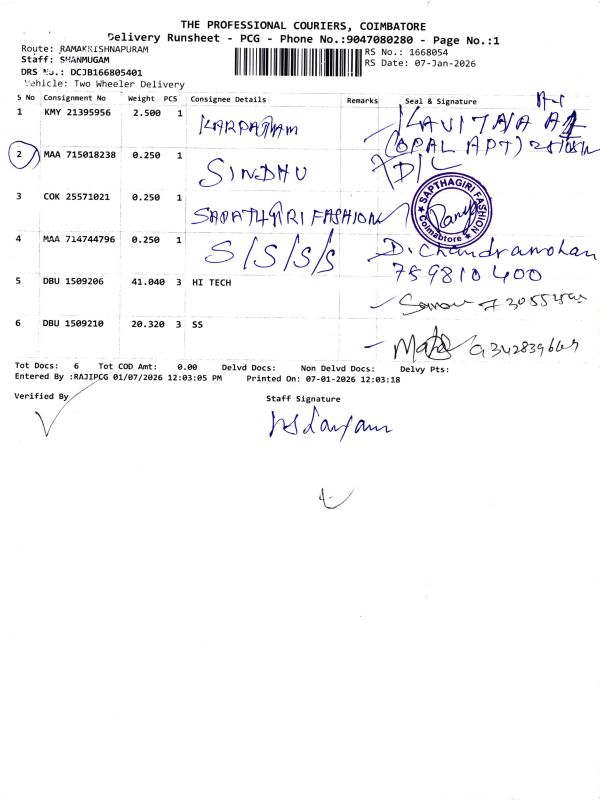 THE PROFESSIONAL COURIERS, COIMBATORE
Delivery Runsheet - PCG - Phone No.:9047080280 - Page No.:1
Route: RAMAKRISHNAPURAM
RS No.: 1668054
Staff: SHANMUGAM
RS Date: 07-Jan-2026
DRS No.: DCJB166805401
Vehicle: Two Wheeler Delivery
S No Consignment No Weight PCS Consignee Details Remarks Seal & Signature
1 KMY 21395956 2.500 1 KARPAGAM KAVITHA
(OPAL APT)
2 MAA 715018238 0.250 1 SINDHU D/L
3 COK 25571021 0.250 1 SAPATHGIRI FASHION
SAPTHAGIRI FASHION
Coimbatore
4 MAA 714744796 0.250 1 S/S/S/S D. Chandramohan
759810400
5 DBU 1509206 41.040 3 HI TECH
6 DBU 1509210 20.320 3 SS
Tot Docs: 6 Tot COD Amt: 0.00 Delvd Docs: Non Delvd Docs: Delvy Pts:
Entered By :RAJIPCG 01/07/2026 12:03:05 PM Printed On: 07-01-2026 12:03:18
Verified By Staff Signature